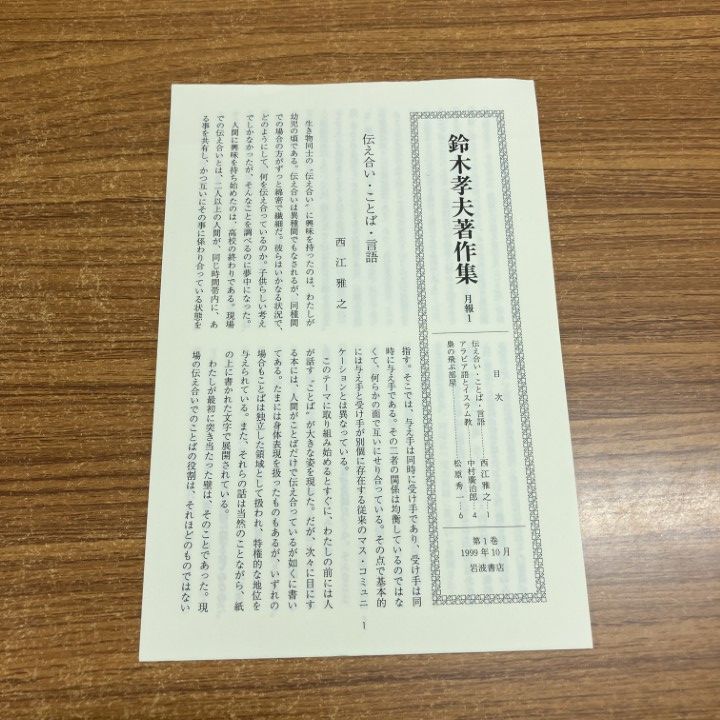 鈴木孝夫著作集 月報1
目次
伝え合い・ことば・言語……西江雅之…1
アラビア語とイスラム教……中村廣治郎…4
梟の飛ぶ部屋……松原秀一…6
第1巻
1999年10月
岩波書店
伝え合い・ことば・言語
西江雅之
生き物同士の〝伝え合い〟に興味を持ったのは、わたしが
幼児の頃である。伝え合いは異種間でもなされるが、同種間
での場合の方がずっと綿密で繊細だ。彼らはいかなる状況で、
どのようにして、何を伝え合っているのか。子供らしい考え
でしかなかったが、そんなことを調べるのに夢中になった。
人間に興味を持ち始めたのは、高校の終わりである。現場
での伝え合いとは、二人以上の人間が、同じ時間帯内に、あ
る事を共有し、かつ互いにその事に係わり合っている状態を
指す。そこでは、与え手は同時に受け手であり、受け手は同
時に与え手である。その二者の関係は均衡しているのではな
くて、何らかの面で互いにせり合っている。その点で基本的
には与え手と受け手が別個に存在する従来のマス・コミュニ
ケーションとは異なっている。
このテーマに取り組み始めるとすぐに、わたしの前には人
が話す〝ことば〟が大きな姿を現した。だが、次々に目にす
る本には、人間がことばだけで伝え合っているが如くに書い
てある。たまには身体表現を扱ったものもあるが、いずれの
場合もことばは独立した領域として扱われ、特権的な地位を
与えられている。また、それらの話は当然のことながら、紙
の上に書かれた文字で展開されている。
わたしが最初に突き当たった壁は、そのことであった。現
場の伝え合いでのことばの役割は、それほどのものではない
1